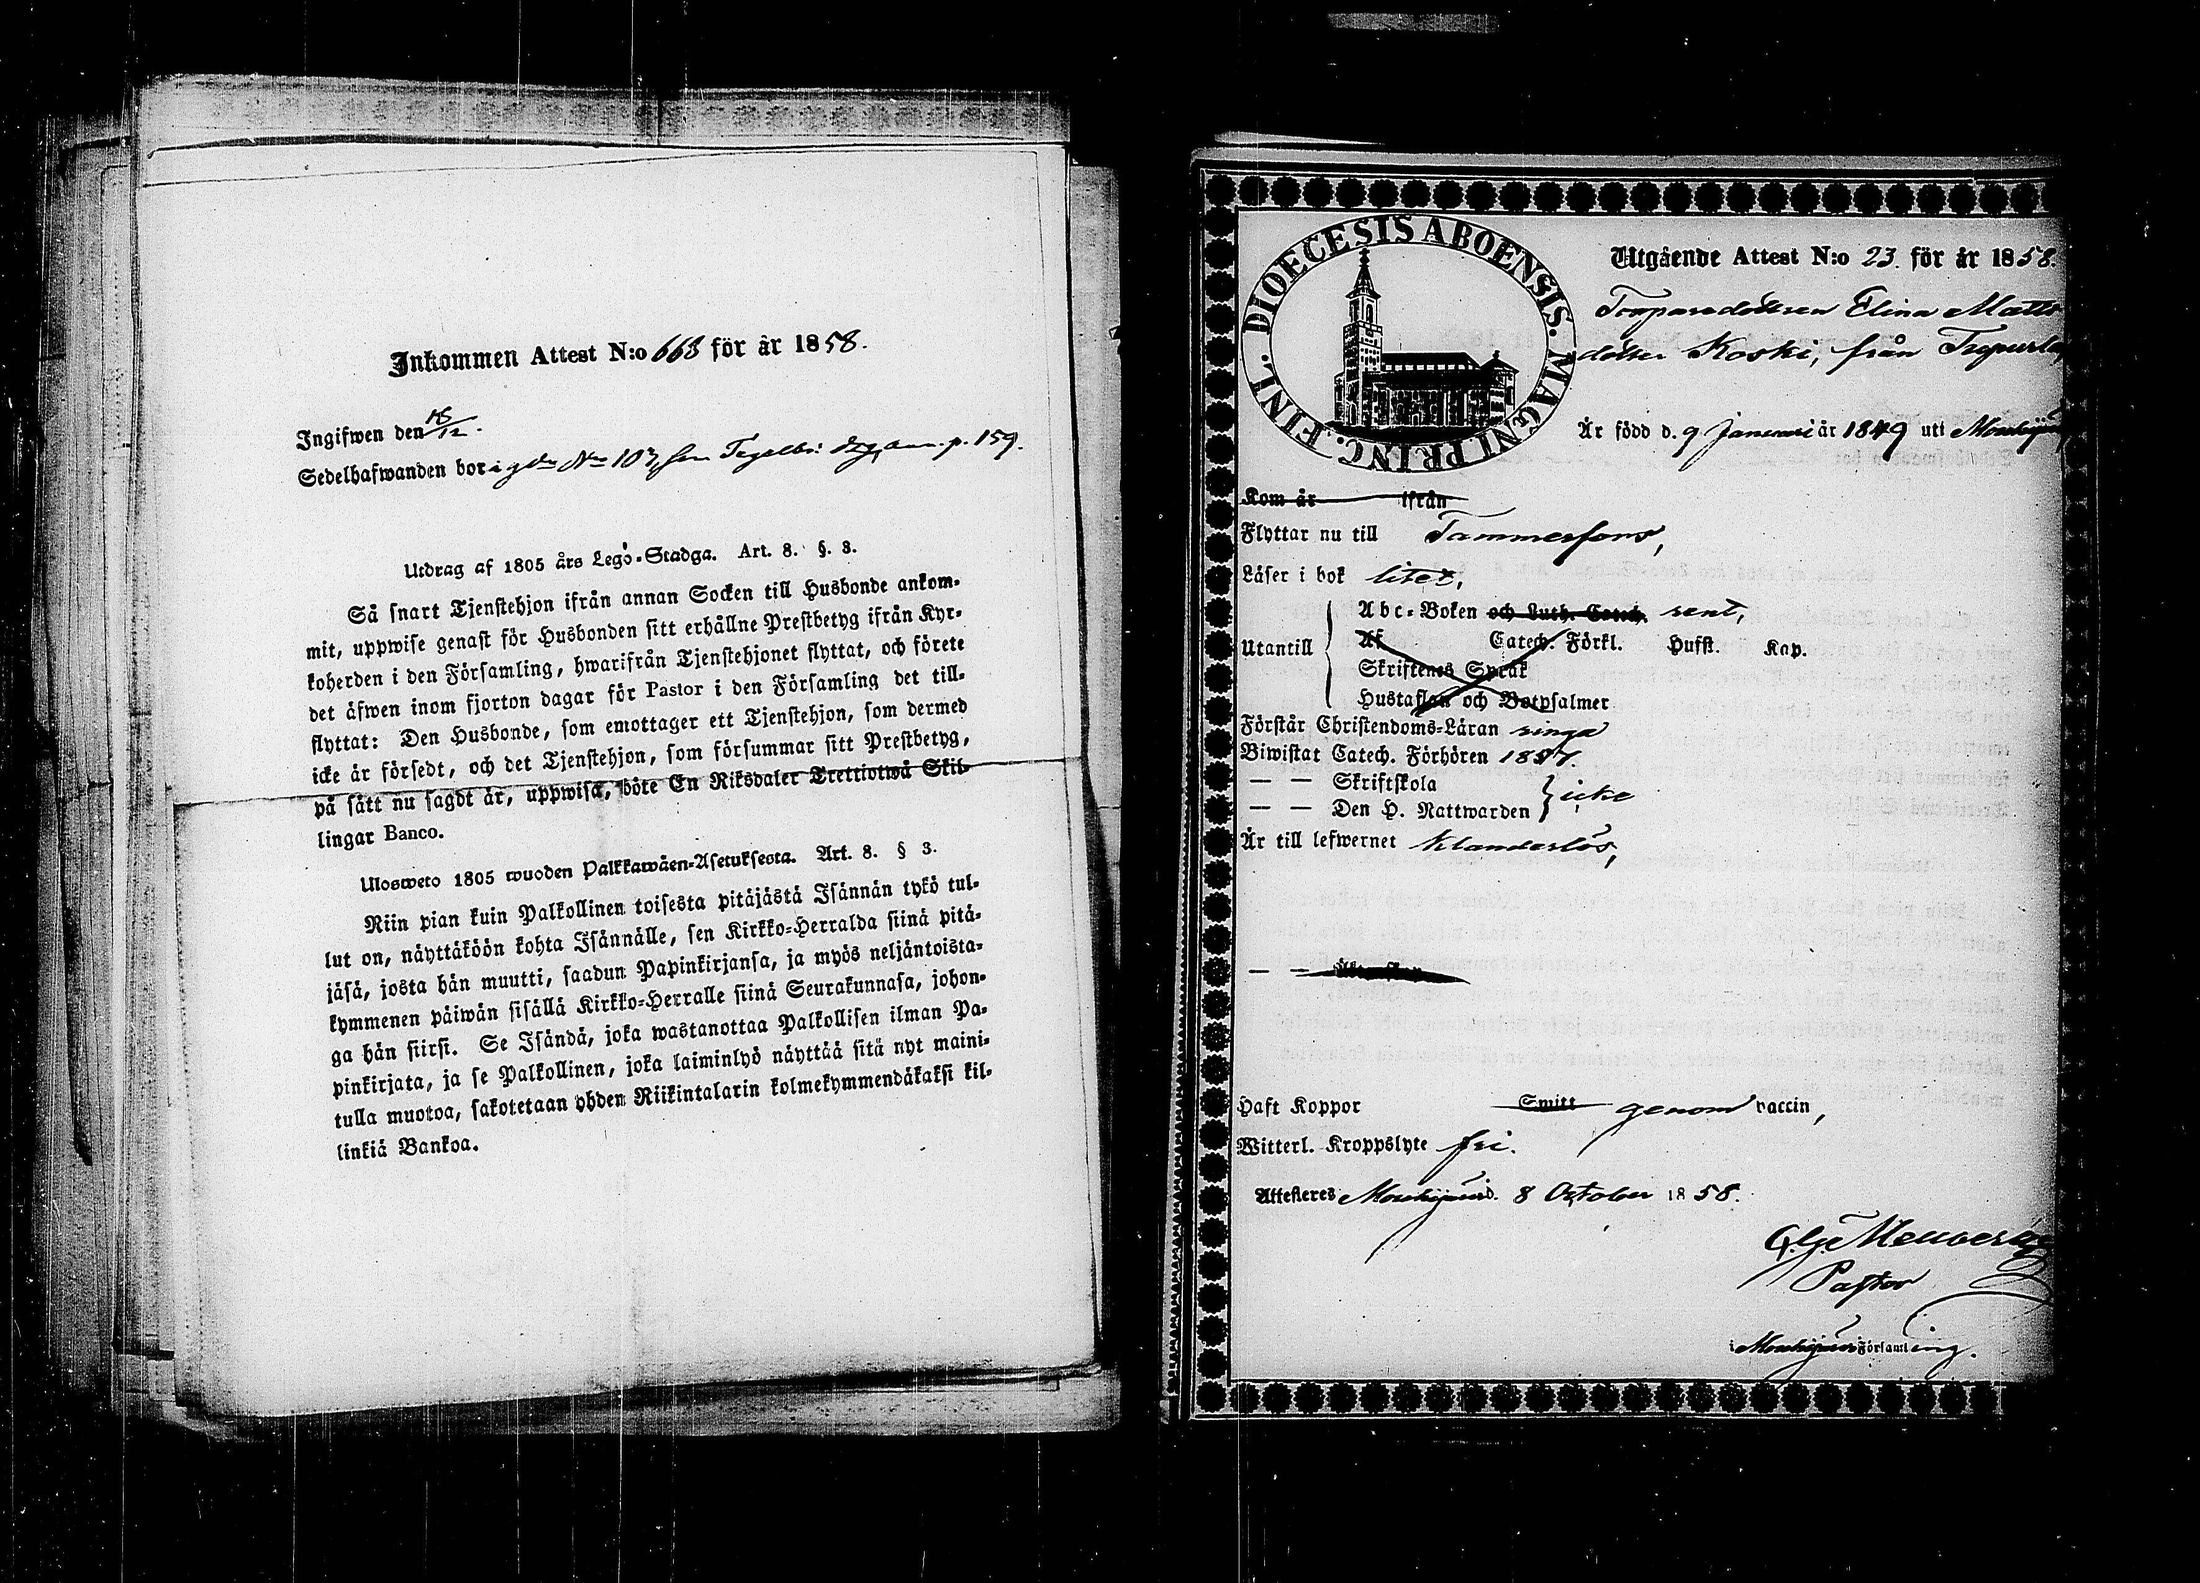 Inkommen Attest N:o 668 för år 1858.
Ingifwen den 18/12.
Sedelhafwanden bor i gdn No 103, p. 159.
Utdrag af 1805 års Lego-Stadga. Art. 8. §. 3.
Så snart Tjenstehjon ifrån annan Socken till Husbonde ankom-
mit, uppwise genast för Husbonden sitt erhållne Prestbetyg ifrån Kyr-
koherden i den Församling, hwarifrån Tjenstehjonet flyttat, och förete
det äfwen inom fjorton dagar för Pastor i den Församling det till-
flyttat: Den Husbonde, som emottager ett Tjenstehjon, som dermed
icke är försedt, och det Tjenstehjon, som försummar sitt Prestbetyg,
på sätt nu sagdt är, uppwisa, böte En Riksdaler Trettiotwå Skil-
lingar Banco.
Ulosweto 1805 wuoden Palkkawäen-Asetuksesta. Art. 8. § 3.
Niin pian kuin Palkollinen toisesta pitäjästä Isännän tykö tul-
lut on, näyttäköön kohta Isännälle, sen Kirkko-Herralda siinä pitä-
jäsä, josta hän muutti, saadun Papinkirjansa, ja myös neljäntoista-
kymmenen päiwän sisällä Kirkko-Herralle siinä Seurakunnasa, johon-
ga hän siirsi. Se Isändä, joka wastanottaa Palkollisen ilman Pa-
pinkirjata, ja se Palkollinen, joka laiminlyö näyttää sitä nyt maini-
tulla muotoa, sakotetaan yhden Riikintalarin kolmekymmendäkaksi kil-
linkiä Bankoa.
DIOECESIS ABOENSIS. MAGNI PRINC. FINL.
Utgående Attest N:o 23. för år 1858.
Torparedottren Elina Matts
dotter Koski, från
Är född d. 9 Januari år 1849 uti Mouhijärvi
Kom år ifrån
Flyttar nu till Tammerfors,
Läser i bok litet,
Abc-Boken och Luth. Catech. rent,
Utantill Af Catech. Förkl. Hufst. Kap.
Skriftenes Språk
Hustaflan och Botpsalmer
Förstår Christendoms-Läran ringa
Biwistat Catech. Förhören 1857.
— — Skriftskola
— — Den H. Nattwarden icke
Är till lefwernet klanderlös,
Haft Koppor Smitt genom vaccin,
Witterl. Kroppslyte fri.
Attesteres Mouhijärvi d. 8 October 1858.
Pastor
i Mouhijärvi Församling.